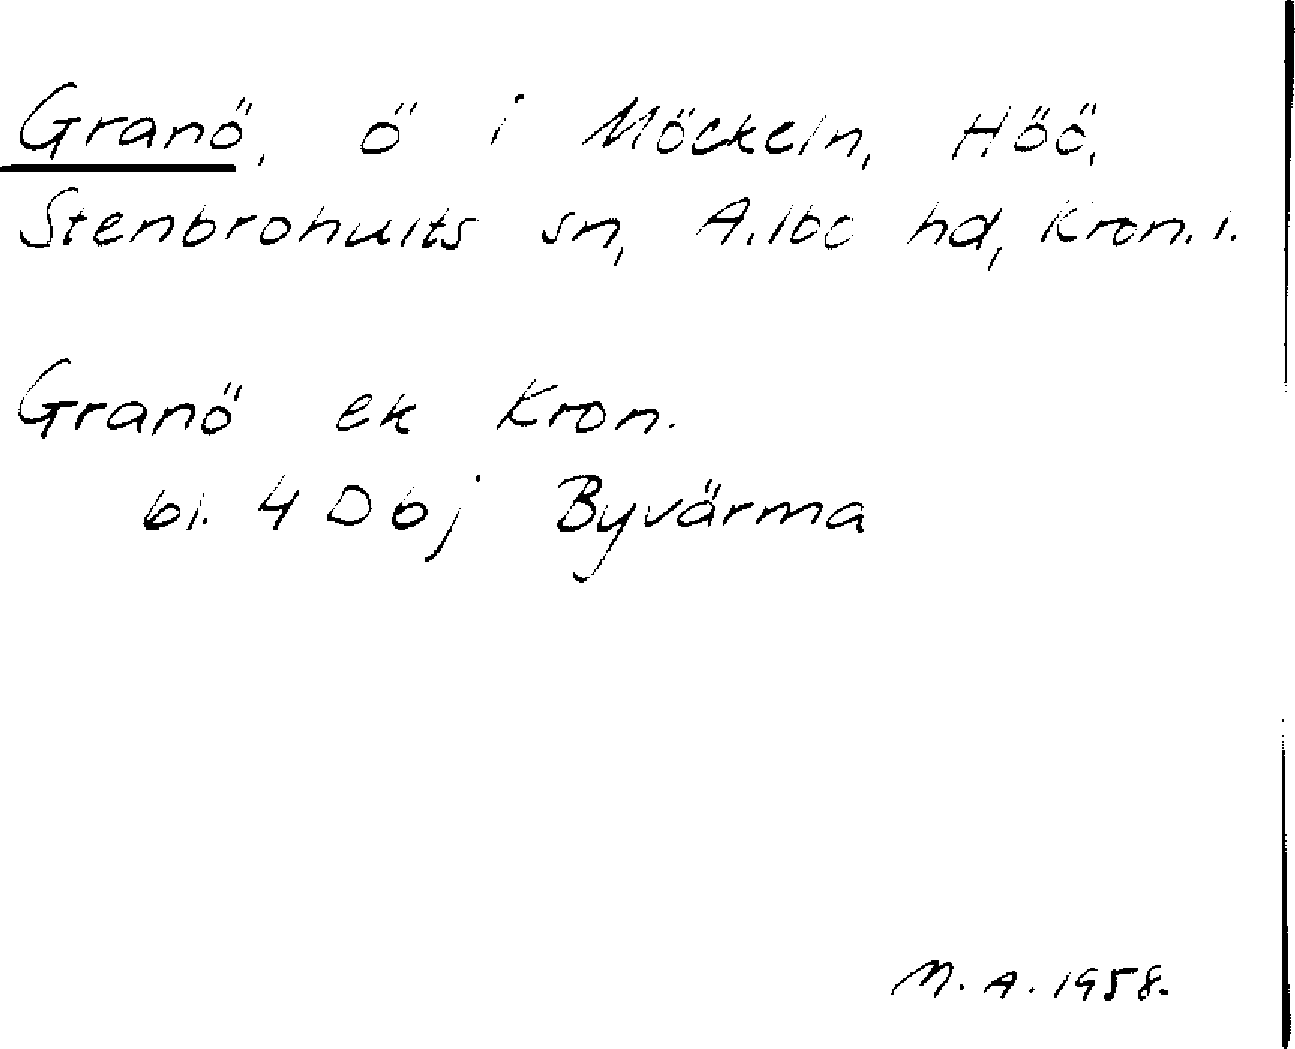 Granö, ö i Möckeln, Höö,
Stenbrohults sn, Allbo hd, Kron. l.
Granö ek Kron.
bl. 4 D 6j Byvärma
M. A. 1958.